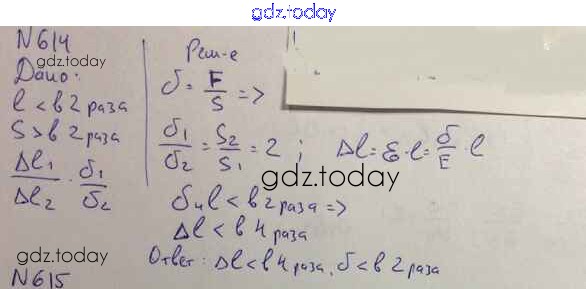 gdz.today
N614
gdz.today
Дано:
l < в 2 раза
S > в 2 раза
Δl₁/Δl₂ · σ₁/σ₂
gdz.today
N615
Реш-е
σ = F/S =>
σ₁/σ₂ = S₂/S₁ = 2 ; Δl = ε · l = σ/E · l
gdz.today
σ и l < в 2 раза =>
Δl < в 4 раза
Ответ: Δl < в 4 раза, σ < в 2 раза
gdz.today